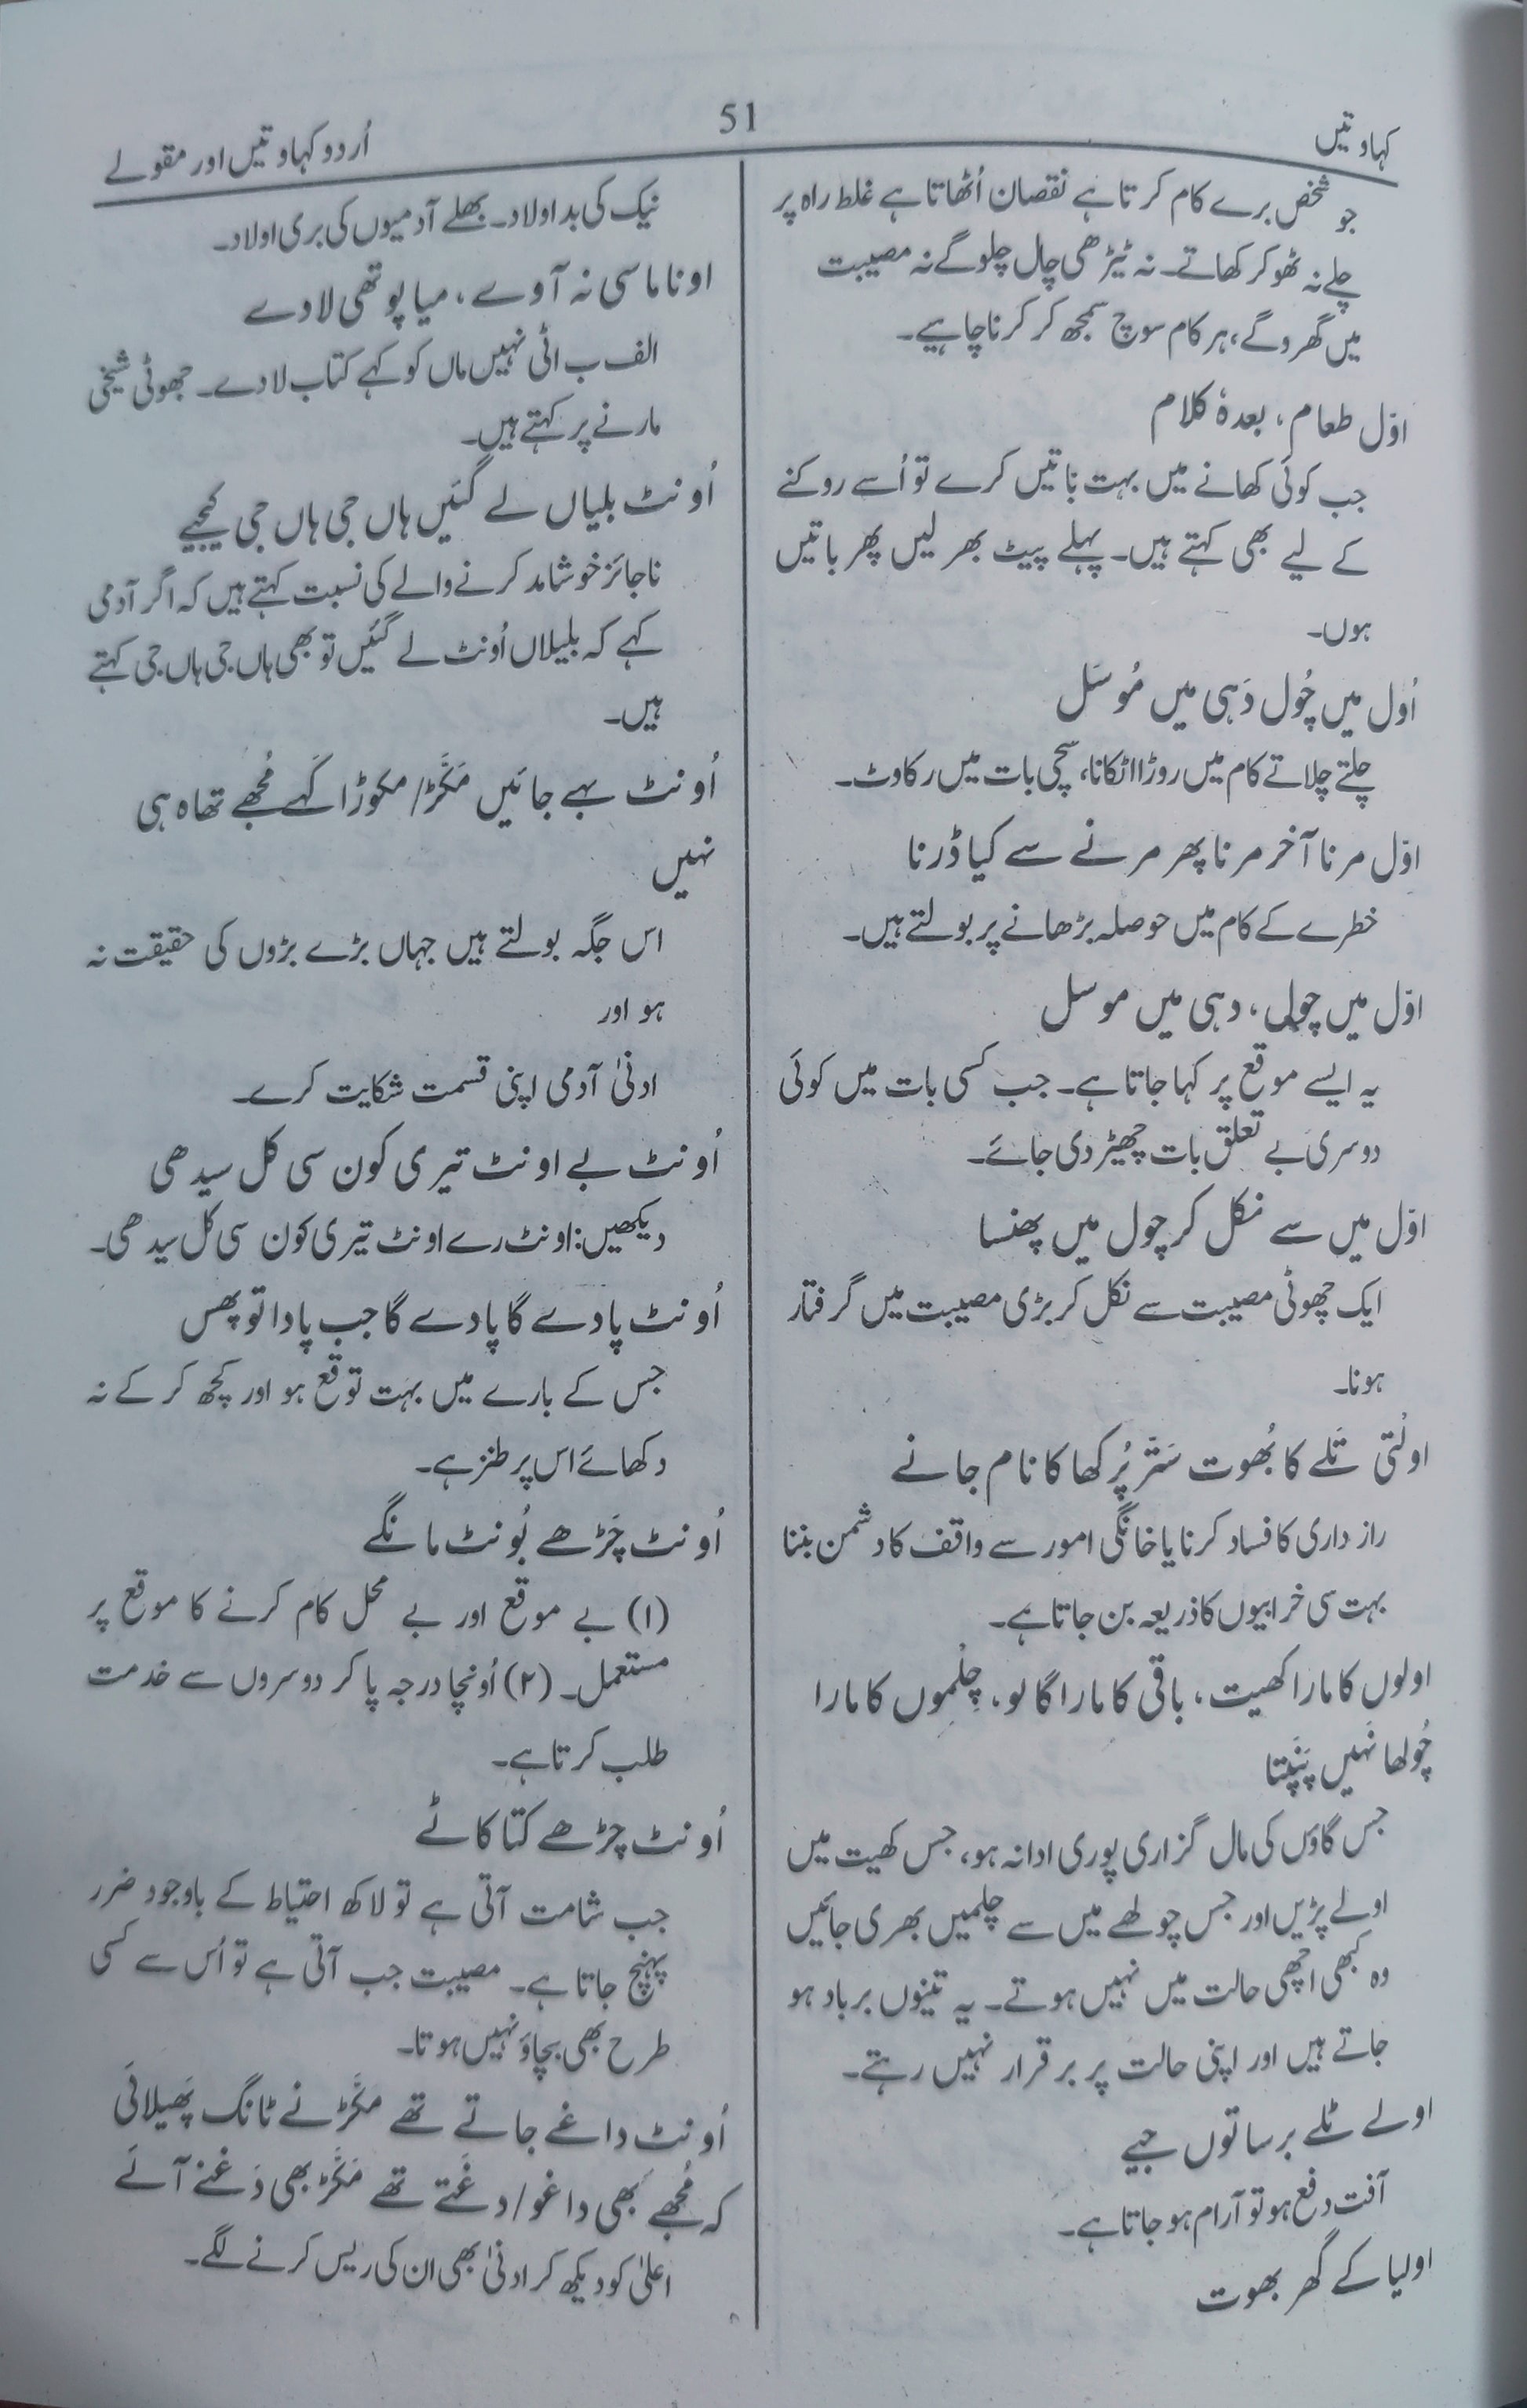 کہاوتیں
51
اُردو کہاوتیں اور مقولے
جو شخص برے کام کرتا ہے نقصان اُٹھاتا ہے غلط راہ پر
چلے نہ ٹھوکر کھاتے۔ نہ ٹیڑھی چال چلو گے نہ مصیبت
میں گھرو گے، ہر کام سوچ سمجھ کر کرنا چاہیے۔
اوّل طعام، بعدہٗ کلام
جب کوئی کھانے میں بہت باتیں کرے تو اُسے روکنے
کے لیے بھی کہتے ہیں۔ پہلے پیٹ بھر لیں پھر باتیں
ہوں۔
اُول میں چُول دَہی میں مُوسَل
چلتے چلاتے کام میں روڑا اٹکانا، سچی بات میں رکاوٹ۔
اوّل مرنا آخر مرنا پھر مرنے سے کیا ڈرنا
خطرے کے کام میں حوصلہ بڑھانے پر بولتے ہیں۔
اوّل میں چولی، دہی میں موسل
یہ ایسے موقع پر کہا جاتا ہے۔ جب کسی بات میں کوئی
دوسری بے تعلق بات چھیڑ دی جائے۔
اوّل میں سے نکل کر چول میں پھنسا
ایک چھوٹی مصیبت سے نکل کر بڑی مصیبت میں گرفتار
ہونا۔
اولْتی تَلے کا بُھوت سَتّر پُرکھا کا نام جانے
راز داری کا فساد کرنا یا خانگی امور سے واقف کا دشمن بننا
بہت سی خرابیوں کا ذریعہ بن جاتا ہے۔
اولوں کا مارا کھیت، باقی کا مارا گاؤں، چِلْموں کا مارا
چُولھا نَہیں پَنَپتا
جس گاؤں کی مال گزاری پوری ادا نہ ہو، جس کھیت میں
اولے پڑیں اور جس چولھے میں سے چلمیں بھری جائیں
وہ کبھی اچھی حالت میں نہیں ہوتے۔ یہ تینوں برباد ہو
جاتے ہیں اور اپنی حالت پر برقرار نہیں رہتے۔
اولے ٹلے برساتوں جیے
آفت دفع ہو تو آرام ہو جاتا ہے۔
اولیا کے گھر بھوت
نیک کی بد اولاد۔ بھلے آدمیوں کی بری اولاد۔
اوناماسی نہ آوے، میا پوتھی لا دے
الف ب ائی نہیں ماں کو کہے کتاب لا دے۔ جھوٹی شیخی
مارنے پر کہتے ہیں۔
اُونٹ بلیاں لے گئیں ہاں جی ہاں جی کیجیے
ناجائز خوشامد کرنے والے کی نسبت کہتے ہیں کہ اگر آدمی
کہے کہ بلیلاں اُونٹ لے گئیں تو بھی ہاں جی ہاں جی کہتے
ہیں۔
اُونٹ بہے جائیں مَکَّڑ/مکوڑا کَہے مُجھے تھاہ ہی
نہیں
اس جگہ بولتے ہیں جہاں بڑے بڑوں کی حقیقت نہ
ہو اور
ادنیٰ آدمی اپنی قسمت شکایت کرے۔
اُونٹ بے اونٹ تیری کون سی کل سیدھی
دیکھیں: اونٹ رے اونٹ تیری کون سی کل سیدھی۔
اُونٹ پادے گا پادے گا جب پادا تو پھس
جس کے بارے میں بہت توقع ہو اور کچھ کر کے نہ
دکھائے اس پر طنز ہے۔
اُونٹ چَڑھے بُونٹ مانگے
(۱) بے موقع اور بے محل کام کرنے کا موقع پر
مستعمل۔ (۲) اُونچا درجہ پا کر دوسروں سے خدمت
طلب کرتا ہے۔
اُونٹ چڑھے کتّا کاٹے
جب شامت آتی ہے تو لاکھ احتیاط کے باوجود ضرر
پہنچ جاتا ہے۔ مصیبت جب آتی ہے تو اُس سے کسی
طرح بھی بچاؤ نہیں ہوتا۔
اُونٹ داغے جاتے تھے مَکَّڑ نے ٹانگ پَھیلائی
کہ مُجھے بَھی داغو/دغتے تھے مَکَّڑ بھی دَغنے آئے
اعلیٰ کو دیکھ کر ادنیٰ بھی ان کی ریس کرنے لگے۔